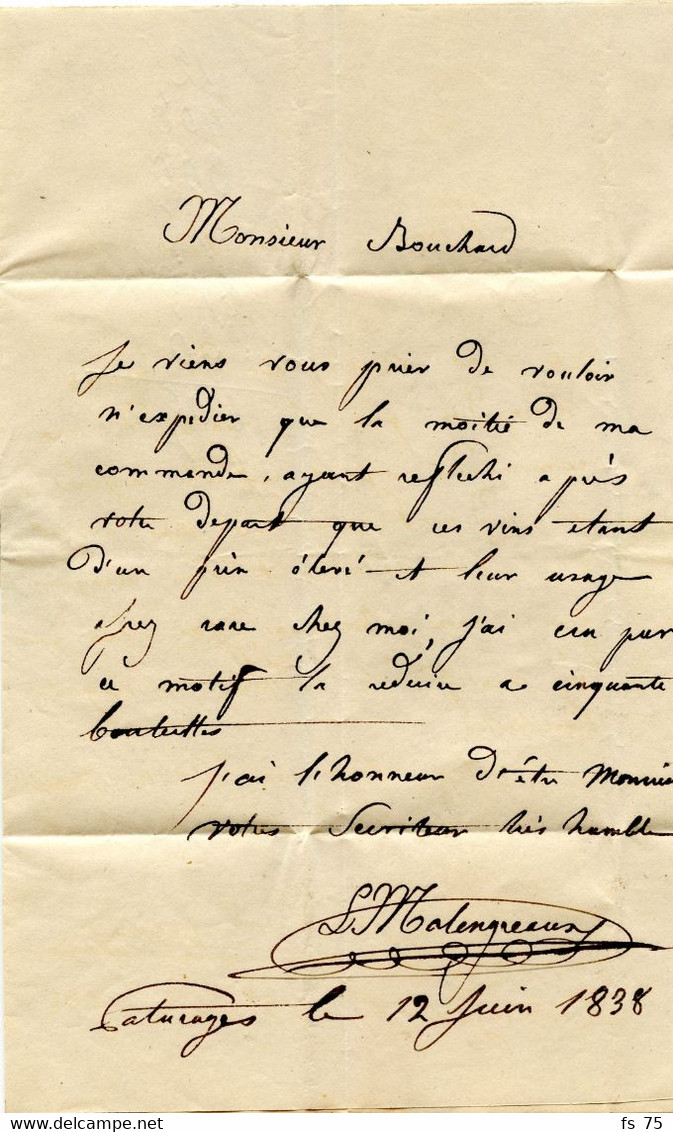 Monsieur Bouchard
Je viens vous prier de vouloir
n'expedier que la moitié de ma
commande, ayant reflechi après
votre depart que ces vins etant
d'un prix élevé et leur usage
assez rare chez moi, j'ai cru par
ce motif la reduire a cinquante
bouteilles
J'ai l'honneur d'être Monsie
votre Serviteur très humble
L Malengreaux
Paturages le 12 Juin 1838
fs 75